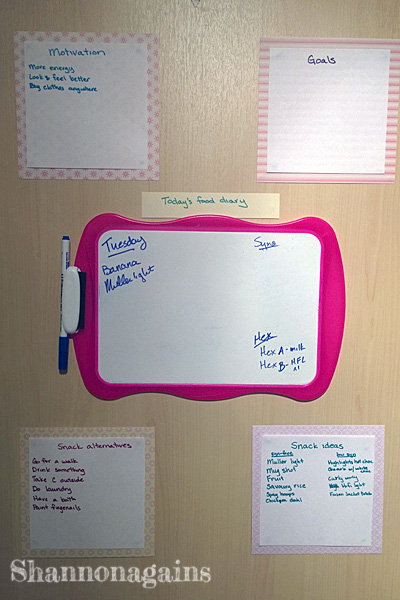 Motivation
More energy
Look & feel better
Buy clothes anywhere
Goals
Today's food diary
Tuesday
Banana
Mullerlight
Syns
Hex
Hex A - milk
Hex B - HFL
x1
Snack alternatives
Go for a walk
Drink something
Take C outside
Do laundry
Have a bath
Paint fingernails
Snack ideas
Syn-free
Muller light
Mug shot
Fruit
Savoury rice
Spag hoops
Chickpea dahl
low syn
Highlights hot choc
Curly wurly
Hifi light
Frozen Jacket Potato
Shannonagains